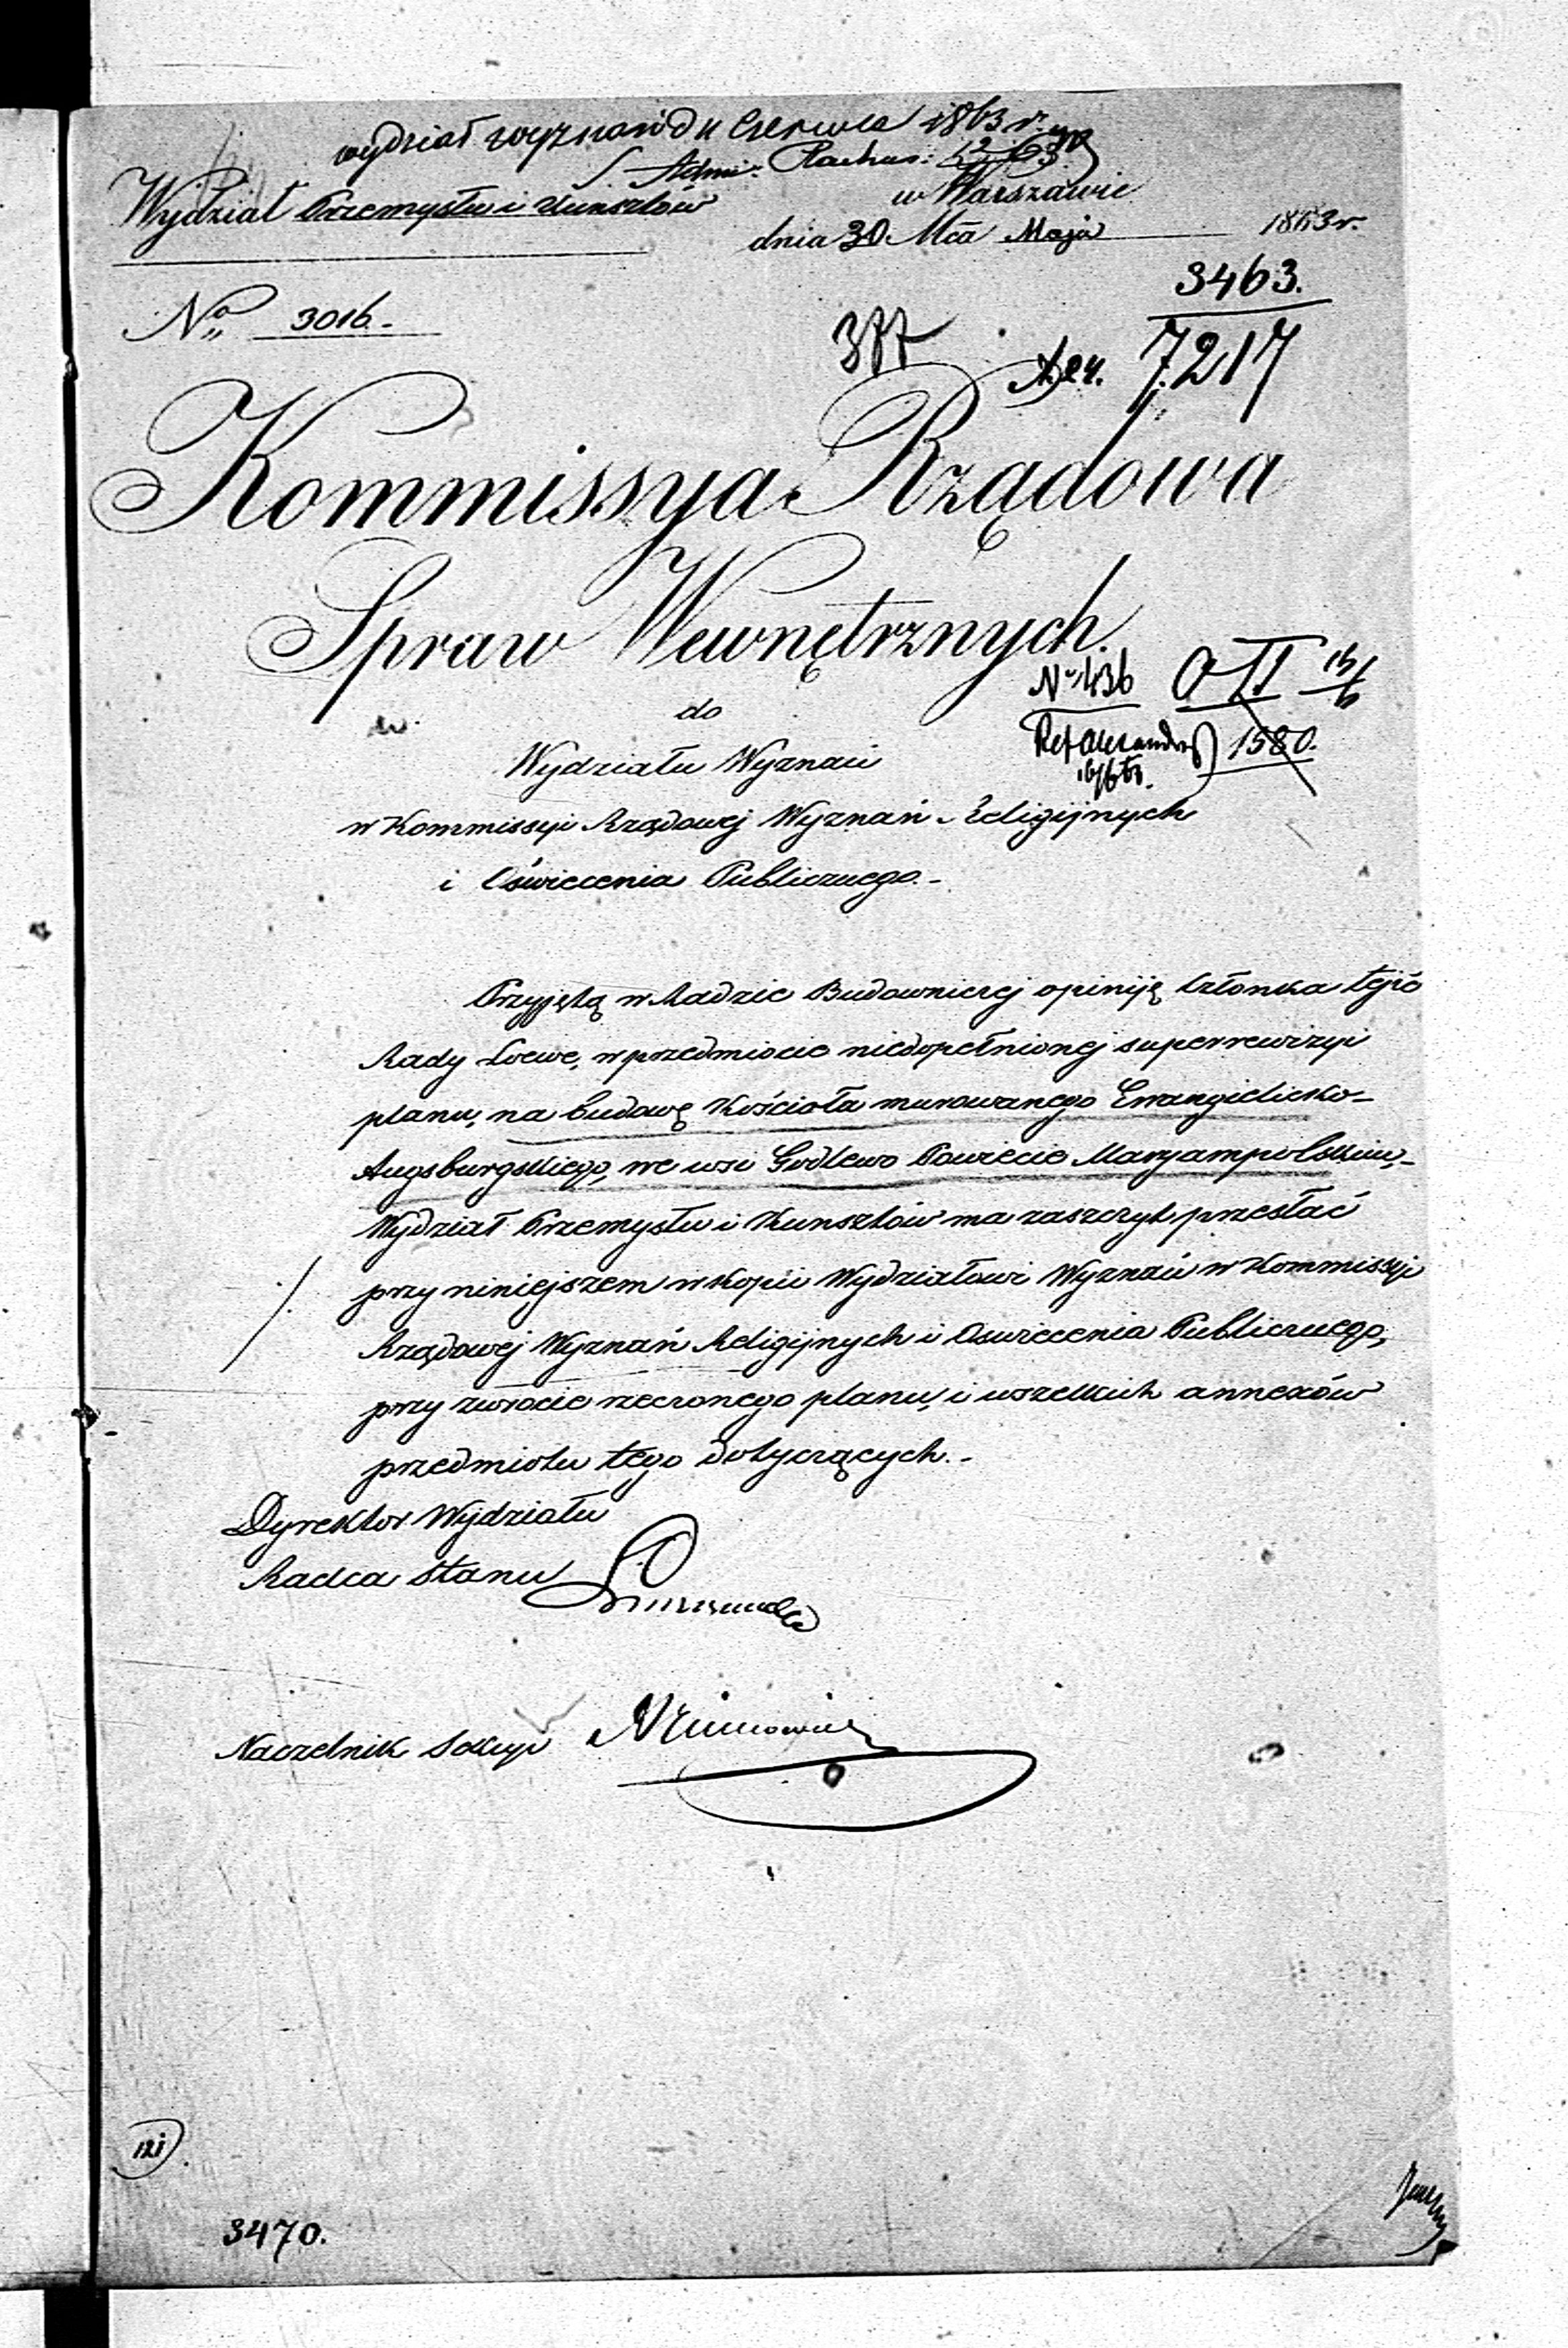 wydział wyznań d 11 Czerwca 1863 r.
Admi. Rachun: 12/6 63
Wydział Przemysłu i Kunsztów
w Warszawie
dnia 30 Mca Maja 1863 r.
3463.
No 3016.-
377
7217
Kommissya Rządowa
Spraw Wewnętrznych.
No 1436
do
1580.
Wydziału Wyznań
w Kommissyi Rządowej Wyznań Religijnych
i Oświecenia Publicznego.-
Przyjętą w Radzie Budowniczej opiniję Członka tejże
Rady Loewe, w przedmiocie niedopełnionej superrewizyi
planu, na budowę Kościoła murowanego Ewangielicko-
Augsburgskiego, we wsi Godlewo Powiecie Maryampolskim,-
Wydział Przemysłu i Kunsztów ma zaszczyt przesłać
przy niniejszem w kopii Wydziałowi Wyznań w Kommissyi
Rządowej Wyznań Religijnych i Oswiecenia Publicznego,
przy zwrocie rzeczonego planu, i wszelkich annexów
przedmiotu tego dotyczących.-
Dyrektor Wydziału
Radca Stanu
Naczelnik Sekcyi
121
3470.